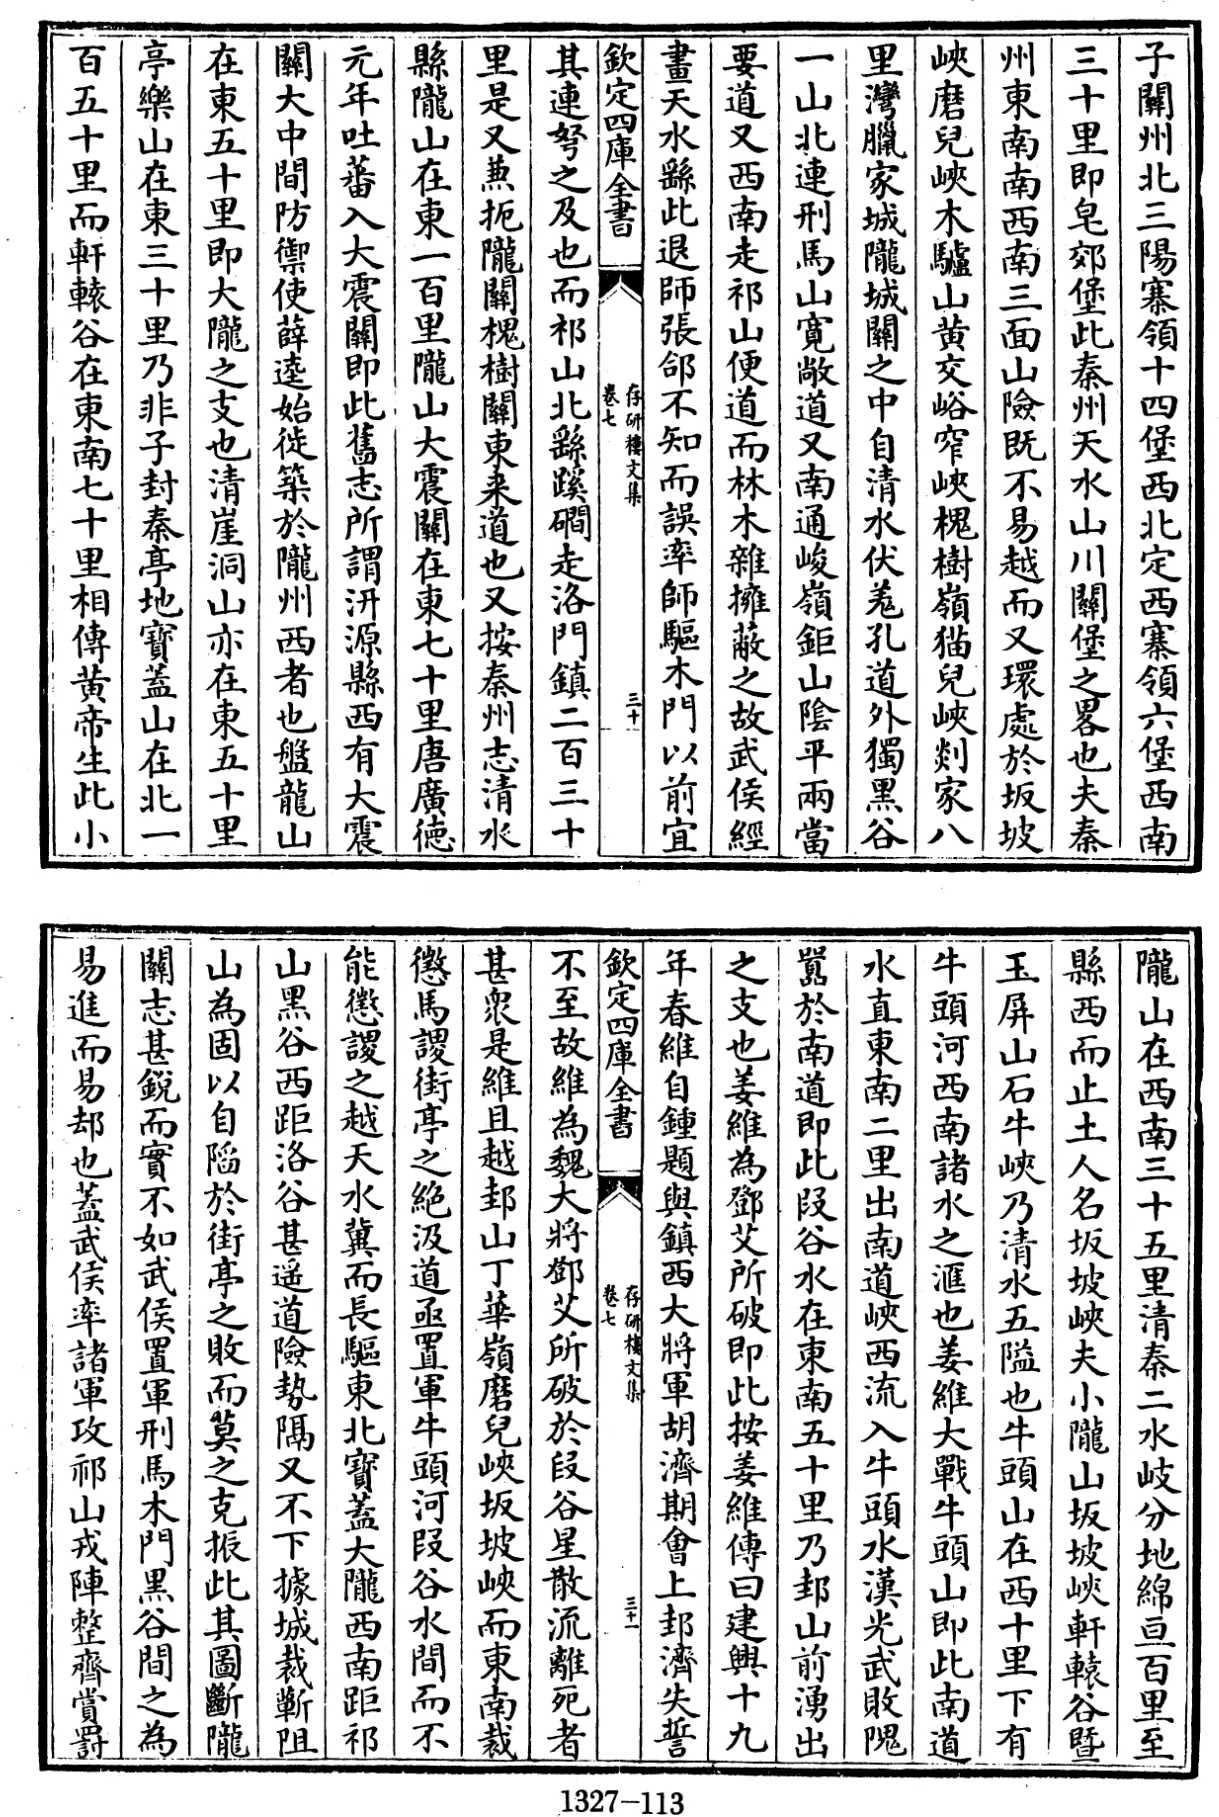 子關州北三陽寨領十四堡西北定西寨領六堡西南
三十里即皂郊堡此秦州天水山川關堡之畧也夫秦
州東南南西南三面山險既不易越而又環處於坂坡
峽磨兒峽木驢山黃交峪窄峽槐樹嶺猫兒峽剡家八
里灣臘家城隴城關之中自清水伏羗孔道外獨黑谷
一山北連刑馬山寛敞道又南通峻嶺鉅山陰平兩當
要道又西南走祁山便道而林木雜擁蔽之故武侯經
畫天水繇此退師張郃不知而誤率師驅木門以前宜
欽定四庫全書
存研樓文集
卷七
三十
其連弩之及也而祁山北繇蹊磵走洛門鎮二百三十
里是又兼扼隴關槐樹關東来道也又按秦州志清水
縣隴山在東一百里隴山大震關在東七十里唐廣徳
元年吐蕃入大震關即此舊志所謂汧源縣西有大震
關大中間防禦使薛逵始徙築於隴州西者也盤龍山
在東五十里即大隴之支也清崖洞山亦在東五十里
亭樂山在東三十里乃非子封秦亭地寶蓋山在北一
百五十里而軒轅谷在東南七十里相傳黄帝生此小
隴山在西南三十五里清秦二水岐分地綿亘百里至
縣西而止土人名坂坡峽夫小隴山坂坡峽軒轅谷暨
玉屏山石牛峽乃清水五隘也牛頭山在西十里下有
牛頭河西南諸水之滙也姜維大戰牛頭山即此南道
水直東南二里出南道峽西流入牛頭水漢光武敗隗
囂於南道即此段谷水在東南五十里乃邽山前湧出
之支也姜維為鄧艾所破即此按姜維傳曰建興十九
年春維自鍾題與鎮西大將軍胡濟期會上邽濟失誓
欽定四庫全書
存研樓文集
卷七
三十一
不至故維為魏大將鄧艾所破於段谷星散流離死者
甚衆是維且越邽山丁華嶺磨兒峽坂坡峽而東南裁
懲馬謖街亭之絶汲道亟置軍牛頭河段谷水間而不
能懲謖之越天水冀而長驅東北寶蓋大隴西南距祁
山黑谷西距洛谷甚遥道險勢隔又不下據城裁蘄阻
山為固以自陷於街亭之敗而莫之克振此其圖斷隴
關志甚鋭而實不如武侯置軍刑馬木門黑谷間之為
易進而易却也蓋武侯率諸軍攻祁山戎陣整齊賞罰
1327-113